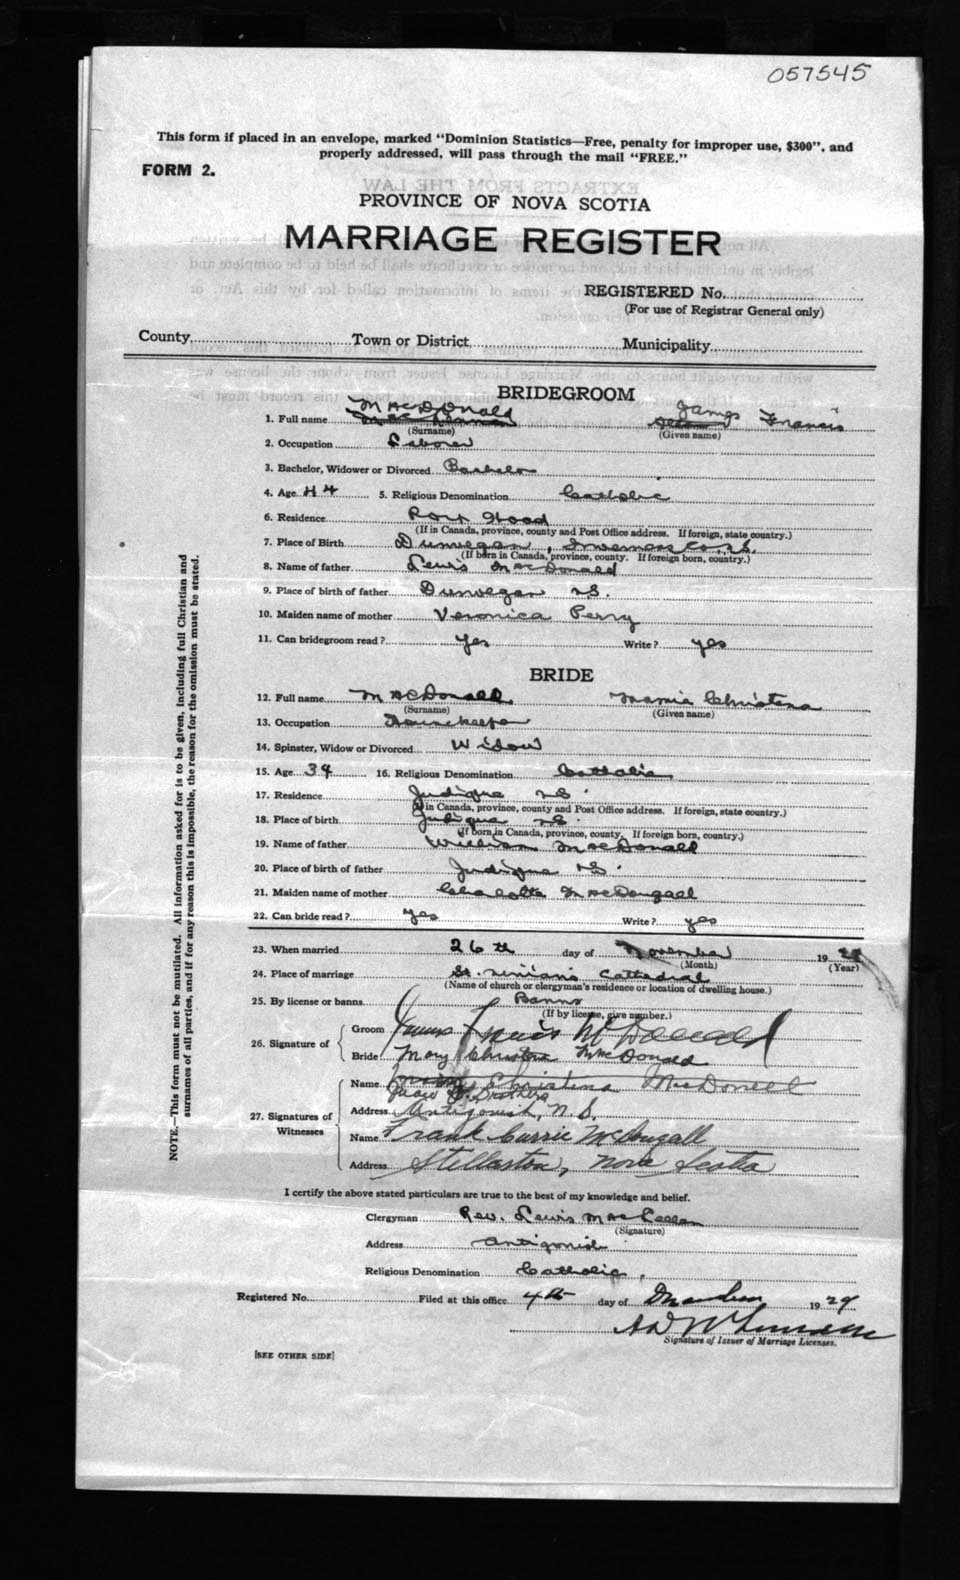 057545
This form if placed in an envelope, marked "Dominion Statistics—Free, penalty for improper use, $300", and
properly addressed, will pass through the mail "FREE."
FORM 2.
PROVINCE OF NOVA SCOTIA
MARRIAGE REGISTER
REGISTERED No.
(For use of Registrar General only)
County Town or District Municipality
BRIDEGROOM
MacDonald James
1. Full name Francis
(Surname) (Given name)
2. Occupation Laborer
3. Bachelor, Widower or Divorced Bachelor
4. Age 44 5. Religious Denomination Catholic
6. Residence Port Hood
(If in Canada, province, county and Post Office address. If foreign, state country.)
7. Place of Birth Dunvegan, Inverness Co.
(If born in Canada, province, county. If foreign born, country.)
8. Name of father Lewis MacDonald
9. Place of birth of father Dunvegan N.S.
10. Maiden name of mother Veronica Perry
11. Can bridegroom read? Yes Write? yes
BRIDE
12. Full name MacDonald Christena
(Surname) (Given name)
13. Occupation Housekeeper
14. Spinster, Widow or Divorced Widow
15. Age 34 16. Religious Denomination Catholic
17. Residence Judique NS
(If in Canada, province, county and Post Office address. If foreign, state country.)
18. Place of birth Judique NS
(If born in Canada, province, county. If foreign born, country.)
19. Name of father William MacDonald
20. Place of birth of father Judique NS
21. Maiden name of mother MacDougall
22. Can bride read? yes Write? yes
23. When married 26th day of November 19
(Month) (Year)
24. Place of marriage St. Ninian's Cathedral
(Name of church or clergyman's residence or location of dwelling house.)
25. By license or banns Banns
(If by license, give number.)
26. Signature of
Groom James Francis McDonald
Bride Mary Christena MacDonald
27. Signatures of Witnesses
Name Christena MacDonell
Address Antigonish, N.S.
Name Frank Currie McDougall
Address Stellarton, Nova Scotia
I certify the above stated particulars are true to the best of my knowledge and belief.
Clergyman Rev. Lewis MacLellan
(Signature)
Address Antigonish
Religious Denomination Catholic
Registered No. Filed at this office 4th day of 1929
Signature of Issuer of Marriage Licenses.
[SEE OTHER SIDE]
NOTE.—This form must not be mutilated. All information asked for is to be given, including full Christian and
surnames of all parties, and if for any reason this is impossible, the reason for the omission must be stated.